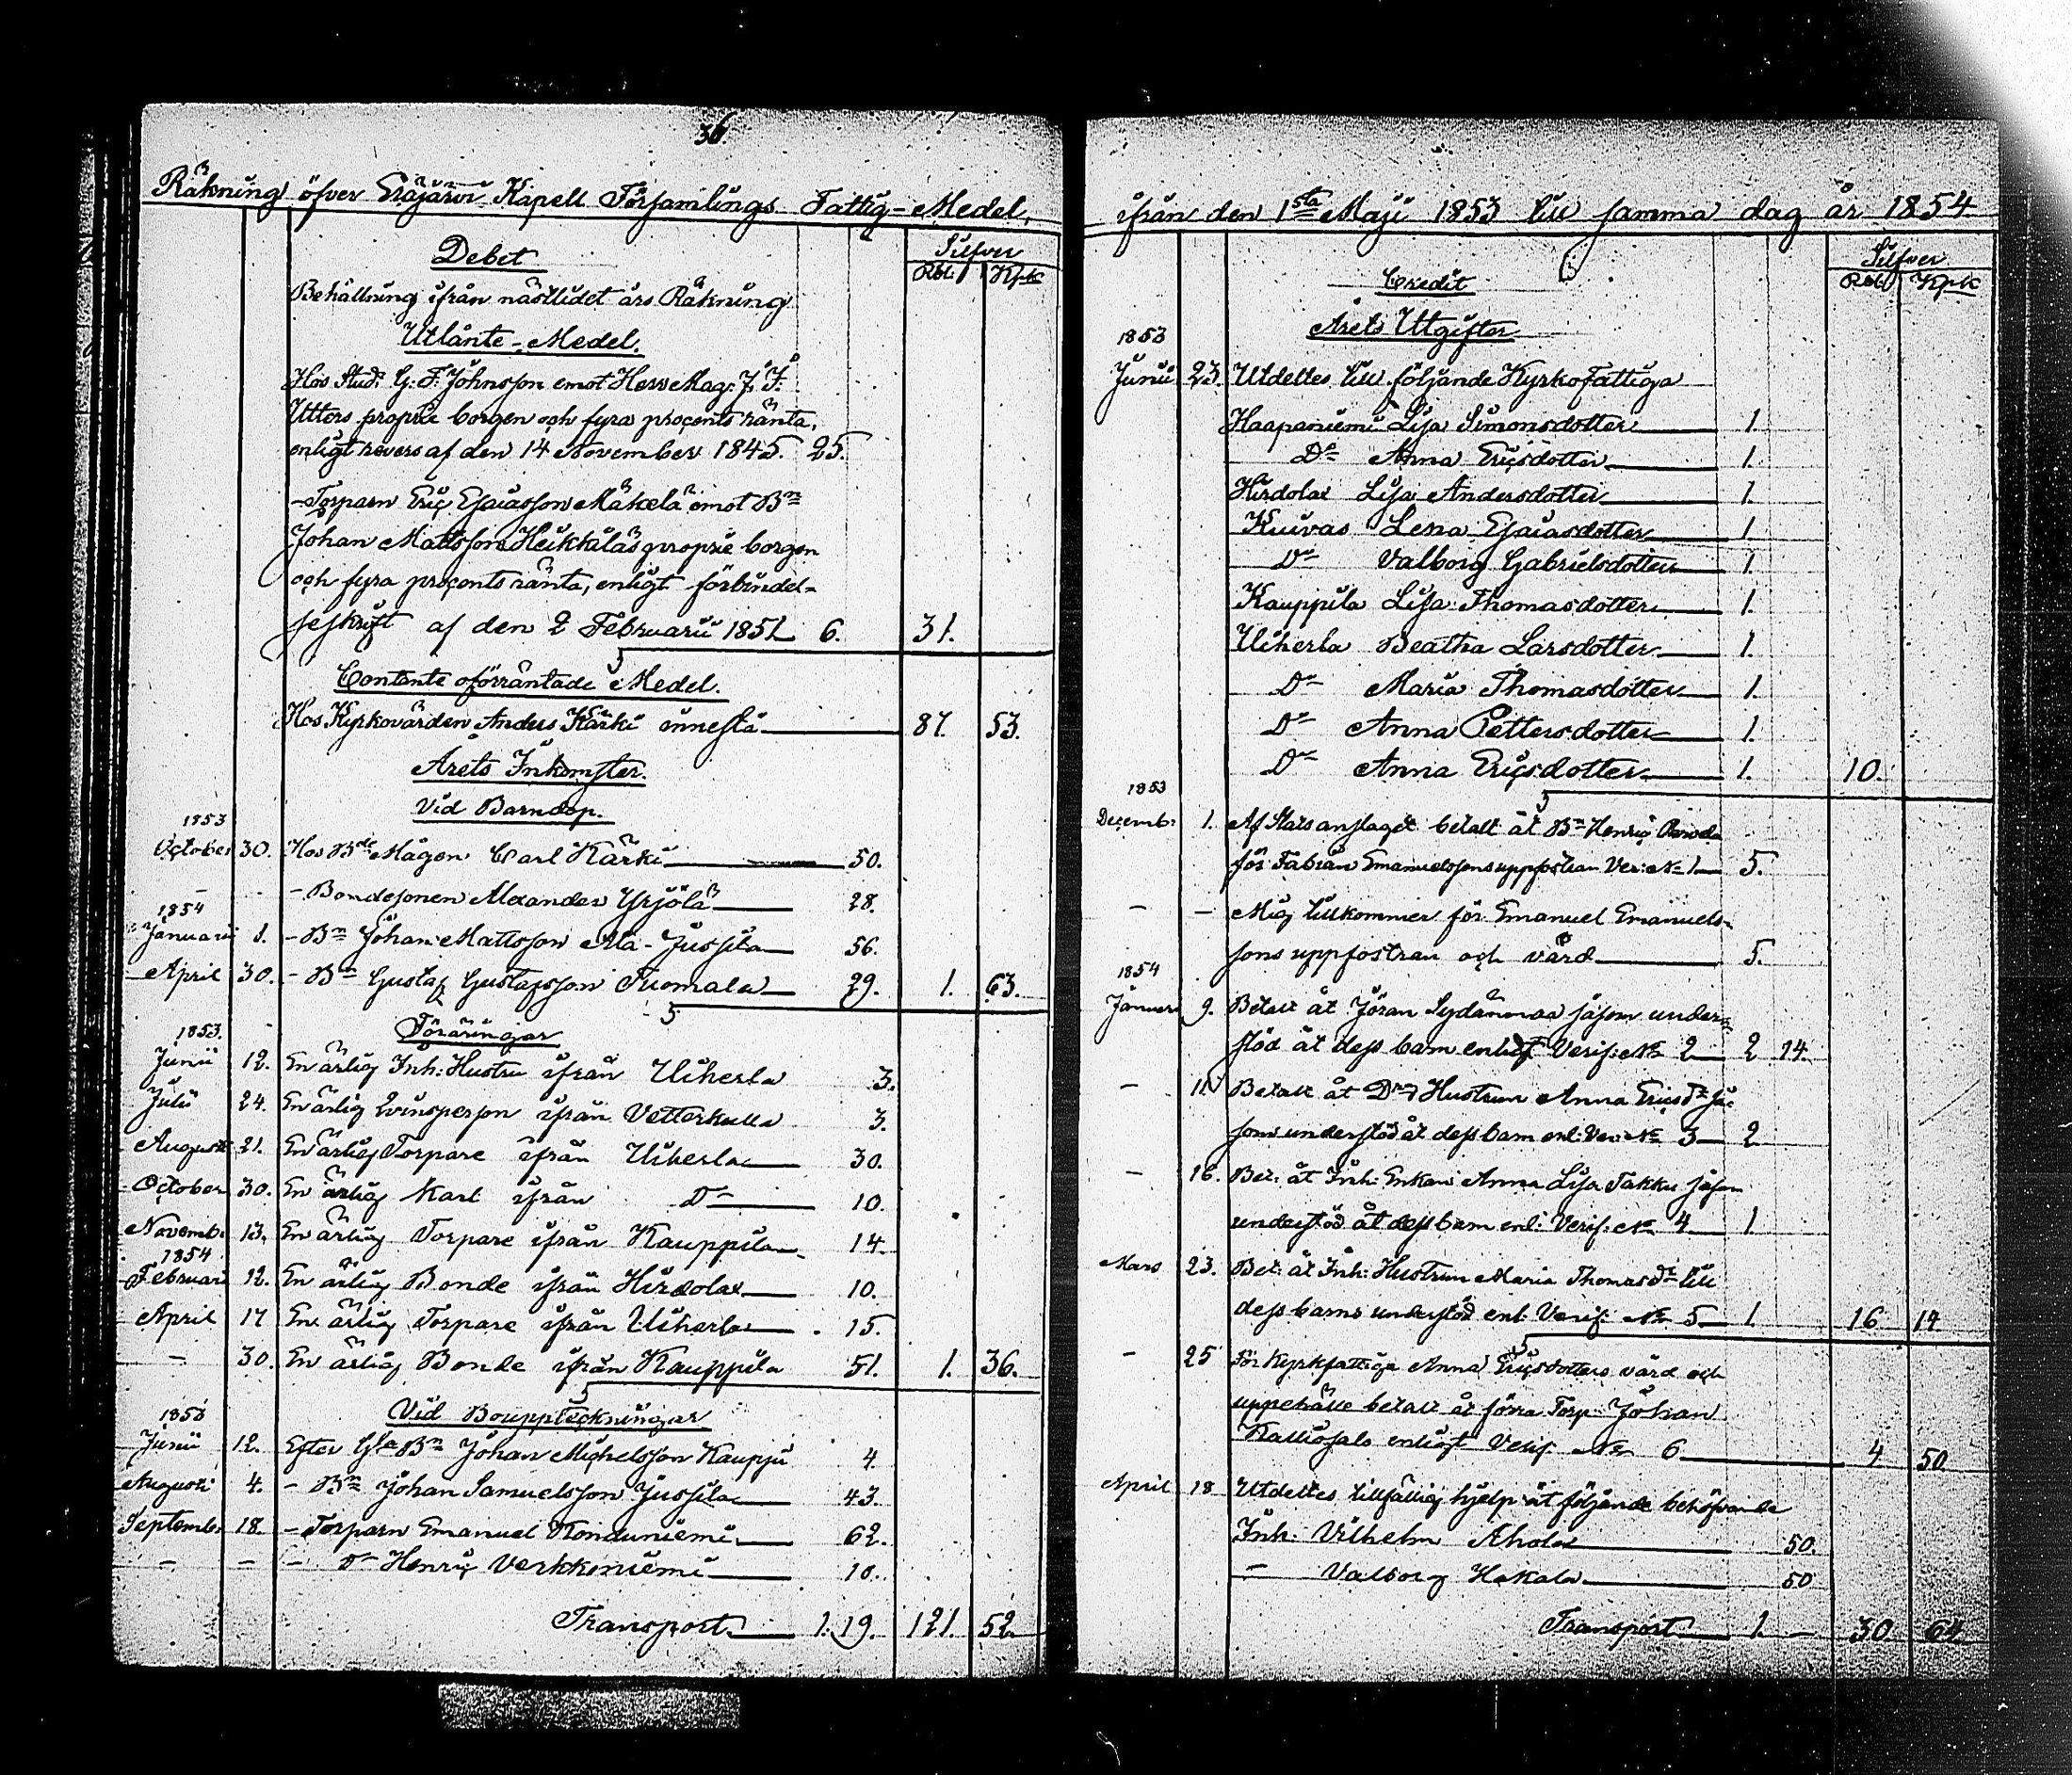 36.
Räkning öfver Eräjärvi Kapell Församlings Fattig-Medel,
Debet
Silfver
Rbl. Kpk
Behållning ifrån nästlidet års Räkning
Utlånte-Medel.
Hos Stud. G: F: Johnsson emot Herr Mag: J: F:
Utters proprie borgen och fyra procents ränta,
enligt revers af den 14 November 1845. 25.
- Torparn Eric Esaiasson Mäkelä emot Bn
Johan Mattsson Heikkiläs proprie borgen
och fyra procents ränta, enligt förbindel-
seskrift af den 2 Februarii 1851 6. 31.
Contante oförräntade Medel.
Hos Kyrkovärden Anders Kärki innestå 87. 53.
Årets Inkomster.
Vid Barndop.
1853
October 30. Hos Bde Mågen Carl Kärki 50.
- - - Bondesonen Alexander Yrjölä 28.
1854
Januarii 1. - Bn Johan Mattsson Ala-Jussila 56.
April 30. - Bn Gustaf Gustafsson Tuomala 29. 1. 63.
Föräringar
1853.
Junii 12. En ärlig Inh: Hustru ifrån Uiherla 3.
Julii 24. En ärlig Qvinsperson ifrån Vetterkulla 3.
Augusti 21. En ärlig Torpare ifrån Uiherla 30.
October 30. En ärlig Karl ifrån Do 10.
Novemb. 13. En ärlig Torpare ifrån Kauppila 14.
1854
Februari 12. En ärlig Bonde ifrån Hirdola 10.
April 17 En ärlig Torpare ifrån Uiherla 15.
- 30. En ärlig Bonde ifrån Kauppila 51. 1. 36.
Vid Bouppteckningar
1853
Junii 12. Efter Gle Bn Johan Michelsson Kauppi 4.
Augusti 4. - Bn Johan Samuelsson Jussila 43.
Septemb. 18. - Torparn Emanuel Konduniemi 62.
- - - Do Henric Verkkoniemi 10.
Transport 1. 19. 121. 52.
ifrån den 1sta Maji 1853 till samma dag år 1854
Silfver
Rbl Kpk
Credit
Årets Utgifter
1853
Junii 23. Utdeltes till följande Kyrkofattiga
Haapaniemi Lisa Simonsdotter 1.
Do Anna Ericsdotter 1.
Hirdola Lisa Andersdotter 1.
Kuivas Lena Esaiasdotter 1.
Do Valborg Gabrielsdotter 1.
Kauppila Lisa Thomasdotter 1.
Uiherla Beatha Larsdotter 1.
Do Maria Thomasdotter 1.
Do Anna Pettersdotter 1.
Do Anna Ericsdotter 1. 10.
1853
Decemb: 1. Af Statsanslaget betalt åt Bn Henric
för Fabian Emanuelssons uppfostran Ver: No 1 5.
- - Mig tillkommer för Emanuel Emanuels-
sons uppfostran och vård 5.
1854
Januari 9. Betalt åt Jöran Sydänmaa såsom under-
stöd åt dess barn enligt Verif: No 2 2 14.
- 11. Betalt åt Do Hustrun Anna Ericsdr så-
som understöd åt dess barn enl: Ver: No 3 2
- 16. Bet. åt Inh: Enkan Anna Lisa Takku såsom
understöd åt dess barn enl: Verif: No 4 1
Mars 23. Bet: åt Inh: Hustrun Maria Thomasdr till
dess barns understöd enl: Verif: No 5 1. 16 14.
- 25 För Kyrkfattiga Anna Ericsdotters vård och
uppehälle betalt åt förra Torp: Johan
enligt Verif No 6 4. 50
April 18 Utdeltes tillfällig hjelp åt följande behöfvande
Inh: Vilhelm Ahola 50.
- Valborg Hakala 50
Transport 1. - 30. 64